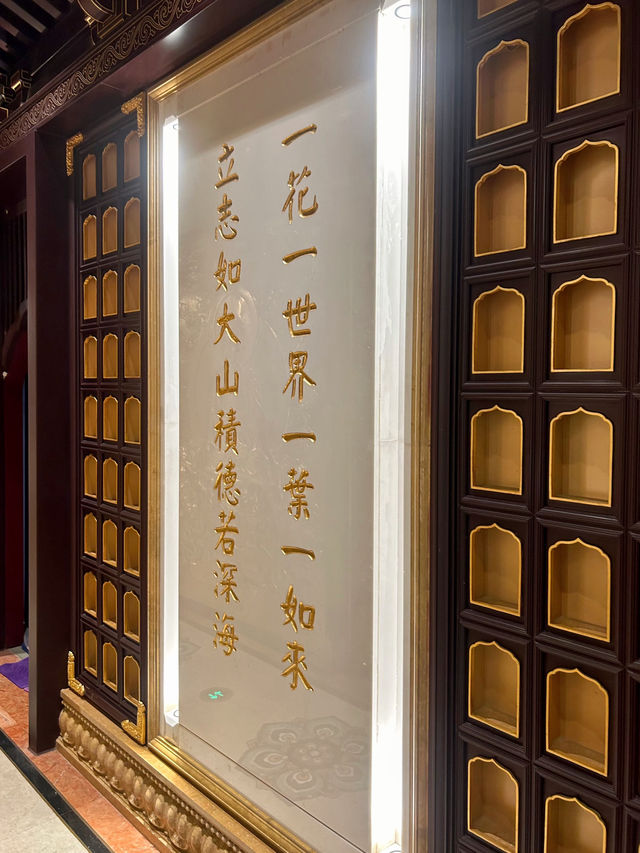 一花一世界一葉一如來
立志如大山積德若深海